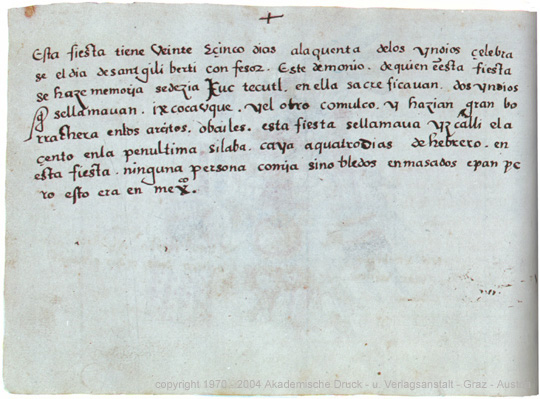 +
Esta fiesta tiene veinte y çinco dias ala quenta delos yndios çelebra
se el dia de sant gili berti con fesor. Este demonio. de quien ē esta fiesta
se haze memoria se dezia xuc tecutl. en ella sacre ficavan. dos yndios
q̄ se llamavan. ix coçauque. y el otro comulco. y hazian gran bo
rrachera enlos areitos. o bailes. esta fiesta se llamava yzcalli el a
çento en la penultima silaba. caya a quatro dias de hebrero. en
esta fiesta. ninguna persona comia sino bledos enmasados e pan pe
ro esto era en mexco.
copyright 1970 - 2004 Akademische Druck - u. Verlagsanstalt - Graz - Aust